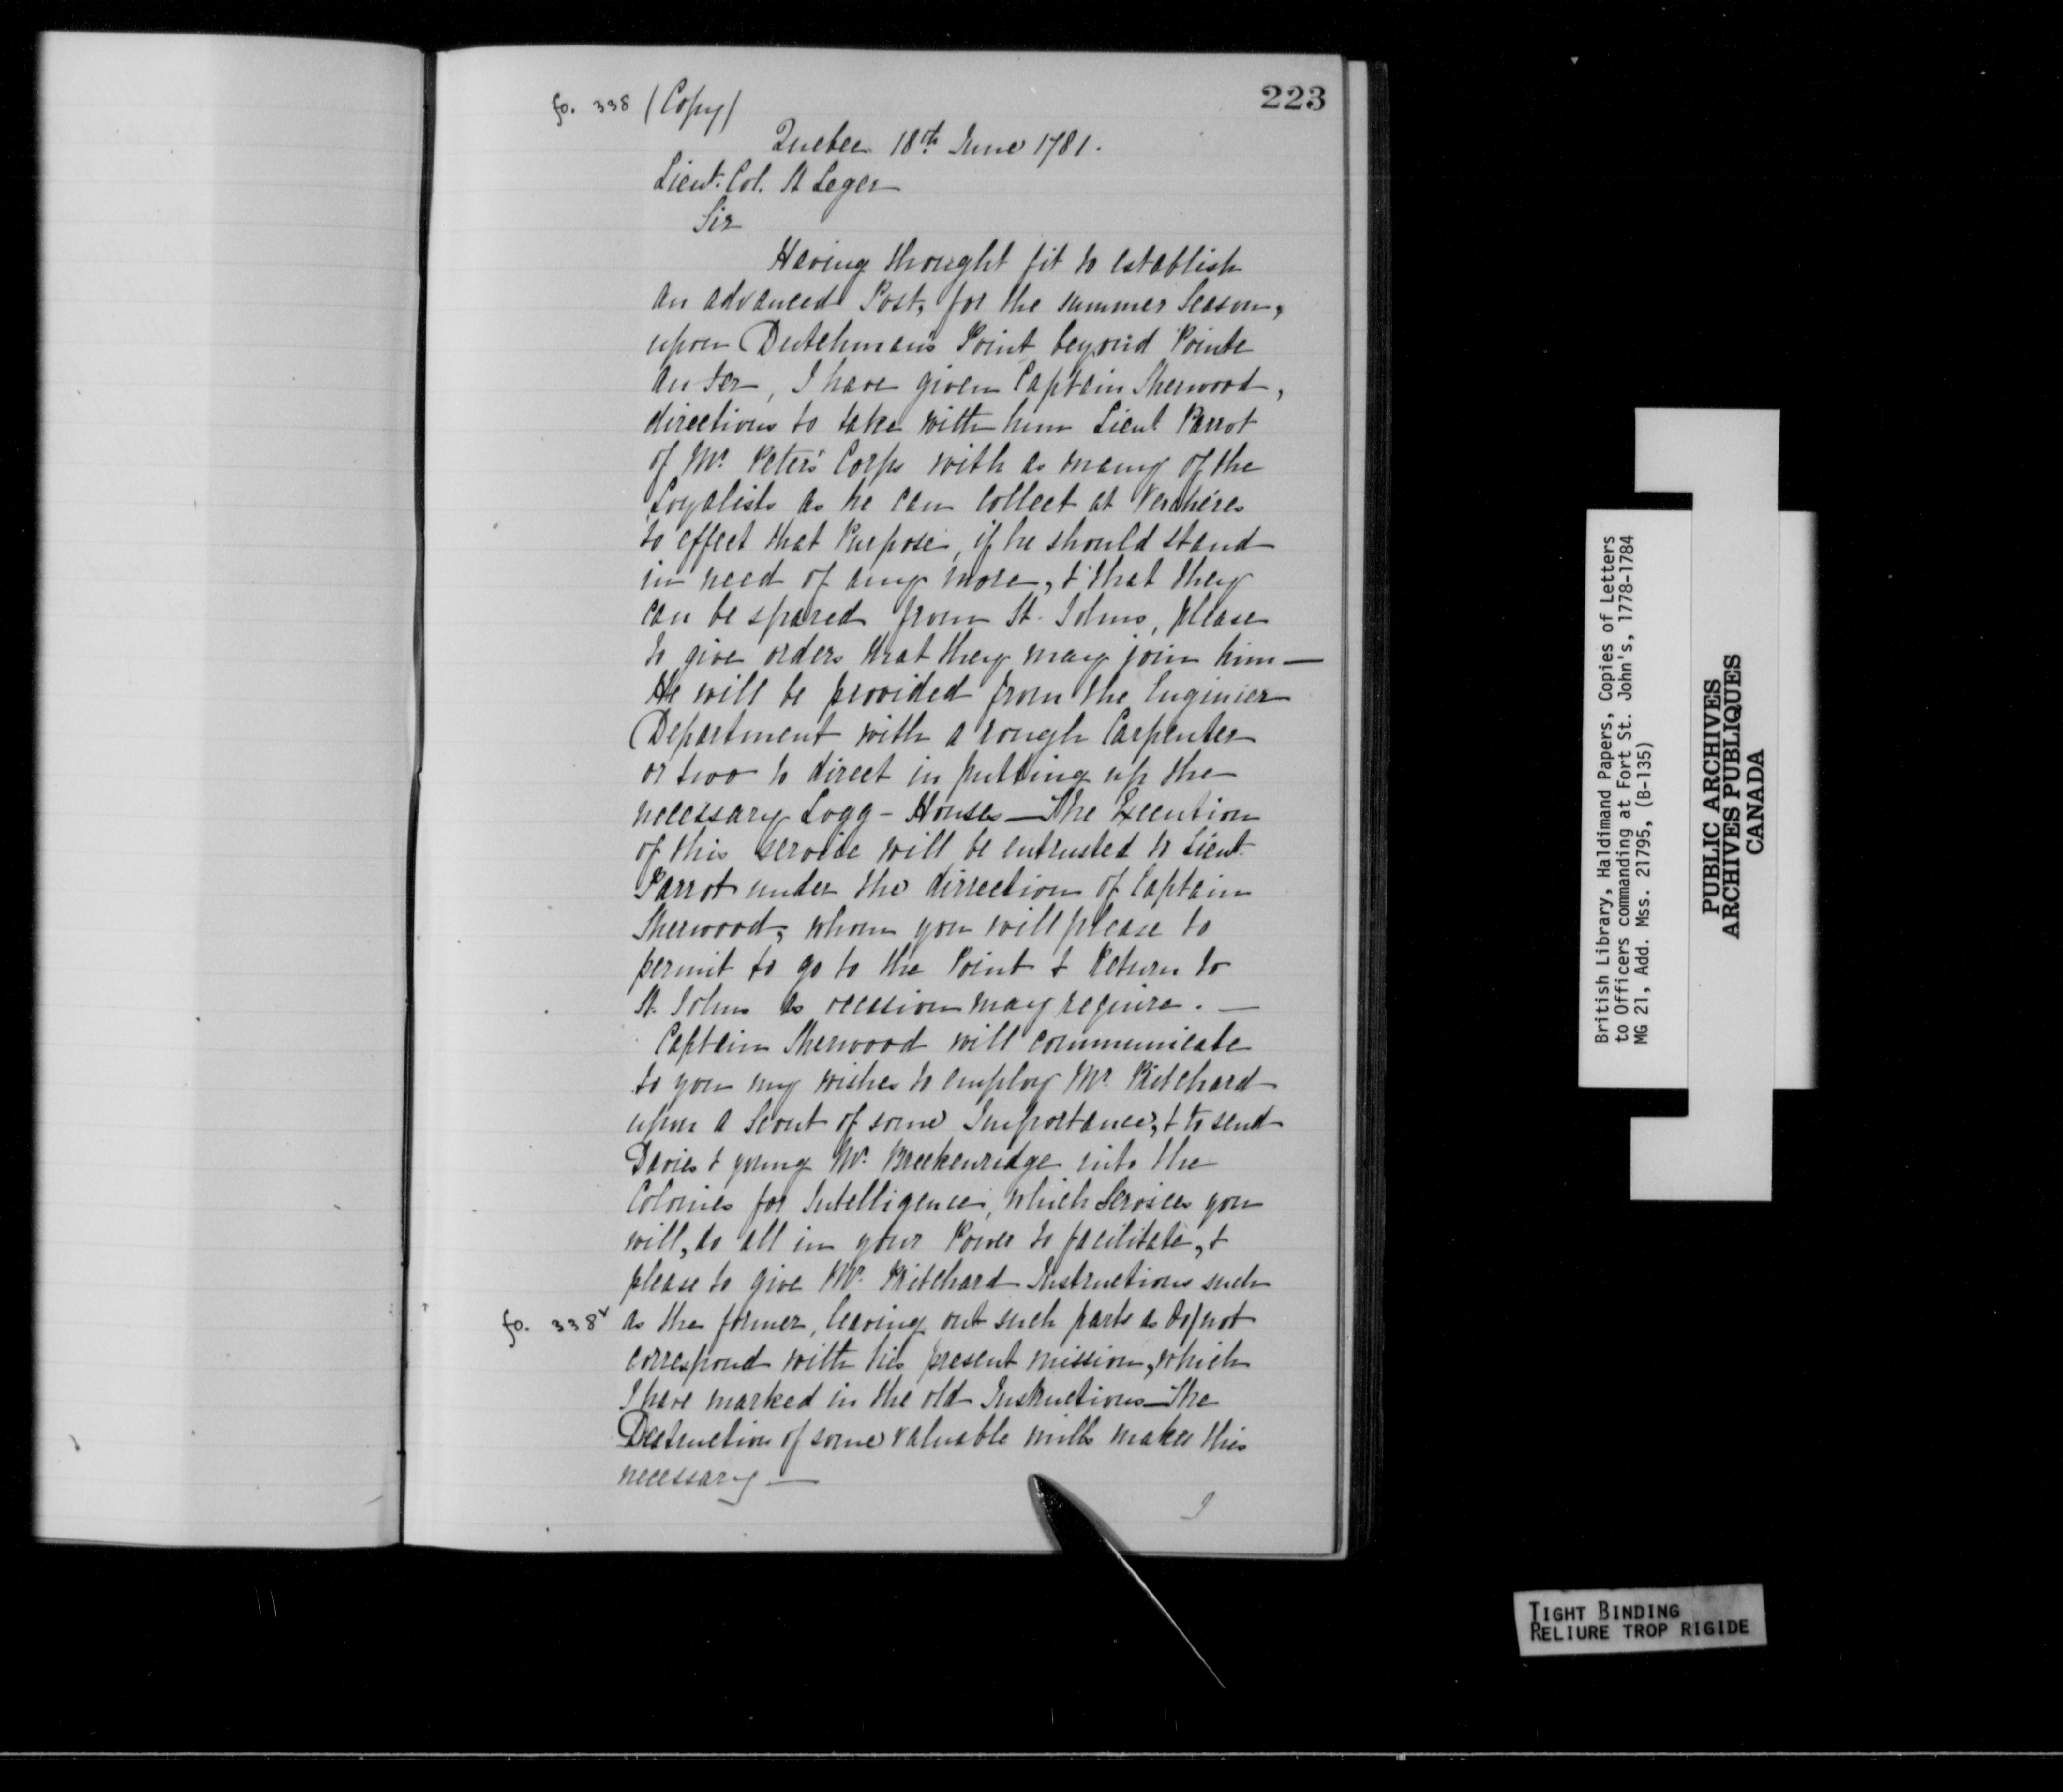 223
fo. 338 (Copy)
Quebec 18th June 1781.
Lieut. Col. St Leger
Sir
Having thought fit to establish
an advanced Post, for the summer Season,
upon Dutchman's Point beyond Pointe
au fer, I have given Captain Sherwood,
directions to take with him Lieut Parrot
of Mr. Peter's Corps with as many of the
Loyalists as he can collect at Verchéres
to effect that Purpose, if he should stand
in need of any more, & that they
can be spared from St. Johns, please
to give orders that they may join him —
He will be provided from the Enginier
Department with a rough Carpenter
or two to direct in putting up the
necessary Logg - Houses — The Execution
of this service will be entrusted to Lieut.
Parrot under the dirrection of Captain
Sherwood, whom you will please to
permit to go to the Point & Return to
St. Johns as occasion may require. —
Captain Sherwood will communicate
to you my wishes to employ Mr. Pritchard
upon a Scout of some Importance, & to send
Davies & young Mr. Breekenridge into the
Colonies for Intelligence, which Services you
will, do all in your Power to facilitate, &
please to give Mr. Pritchard Instructions such
fo. 338v as the former, leaving out such parts as Do not
correspond with his present mission, which
I have marked in the old Instructions — The
Destruction of some valuable mills makes this
necessary —
I
British Library, Haldimand Papers, Copies of Letters
to Officers commanding at Fort St. John's, 1778-1784
MG 21, Add. Mss. 21795, (B-135)
PUBLIC ARCHIVES
ARCHIVES PUBLIQUES
CANADA
TIGHT BINDING
RELIURE TROP RIGIDE